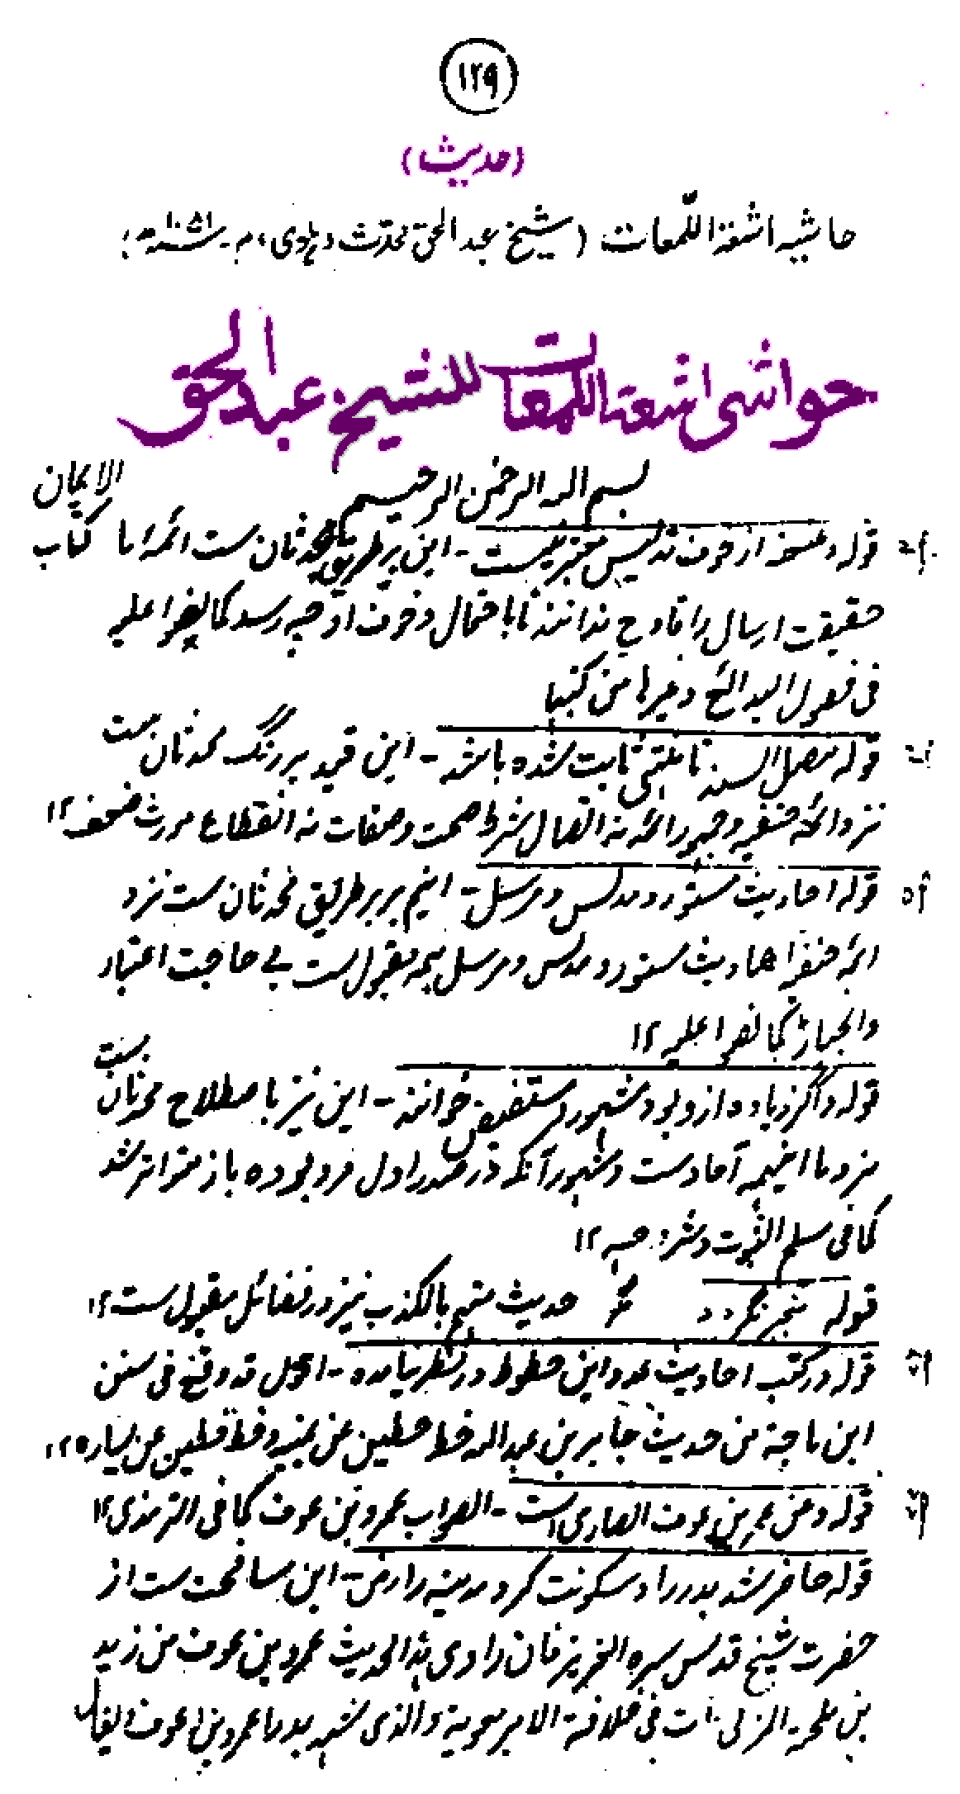 ۱۲۹
(حدیث)
حاشیہ اشعۃ اللّمعات (شیخ عبد الحق محدّث دہلوی، م۔ ۱۰۵۱ھ)
حواشی اشعۃ اللمعات للشیخ عبد الحق
بسم اللہ الرحمٰن الرحیم
قولہ از خوف تدلیس نیست - این بر طریق محدثان ست ائمہ اما کتاب الایمان
حقیقت ارسال را قادح ندانند تا باحتمال و خوف او چہ رسد کما علیہ
فی فصول البدائع وغیرہا من کتبہا
قولہ متصل السند تا ثابت شدہ باشد - این قید بر رنگ محدثان ست
نزد ائمہ حنفیہ و جمہور ائمہ نہ اتصال شرط صحت و نہ انقطاع مورث ضعف ۱۲
قولہ احادیث مستور و مدلس و مرسل - اینہم بر طریق محدثان ست نزد
ائمہ حنفیہ احادیث مستور و مدلس و مرسل ہمہ مقبول ست بے حاجت اعتبار
وانجبار کما نصوا علیہ ۱۲
قولہ و اگر زیادہ از دو بود مشہور و مستفیض خوانند - این نیز باصطلاح محدثان ست
نزد ما اینہمہ آحادست و مشہور آنکہ در صدر اول فرد بودہ باز متواتر شد
کما فی مسلم الثبوت و شروحہ ۱۲
قولہ منجبر نگردد حدیث متہم بالکذب نیز در فضائل مقبول ست ۱۲
قولہ در کتب احادیث عدد این خطوط در نظر نیامدہ - اقول قد وقع فی سنن
ابن ماجۃ من حدیث جابر بن عبد اللہ خط خطین عن یمینہ و خط خطین عن یسارہ ۱۲
قولہ و عن عمر بن عوف انصاری است - الصواب عمرو بن عوف کما فی الترمذی ۱۲
قولہ حاضر شد بدر را و سکونت کرد مدینہ را رض - این مسامحت ست از
حضرت شیخ قدس سرہ العزیز فان راوی ہذا الحدیث عمرو بن عوف من زید
بن ملحۃ المزنی مات فی خلافۃ الامیر معویۃ والذی شہد بدرا عمرو بن عوف